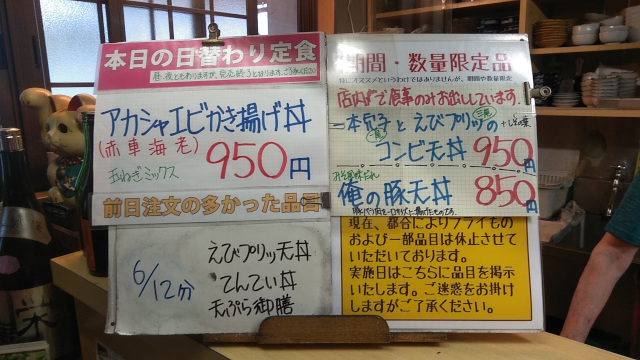 本日の日替わり定食
昼、夜ともありますが、完売続きとなります。ご了承ください
アカシャエビかき揚げ丼
(赤車海老)
950円
玉ねぎミックス
前日注文の多かった品目
6/12分
えびプリッツ天丼
てんてい丼
天ぷら御膳
期間・数量限定品
特にオススメというわけではありませんが、期間や数量限定
店内でご食事のみお出ししています。
一本穴子とえびプリッツの
コンビ天丼 950円
俺の豚天丼 850円
現在、都合によりフライもの
および一部品目は休止させて
いただいております。
実施日はこちらに品目を掲示
いたします。ご迷惑をお掛け
しますがご了承ください。